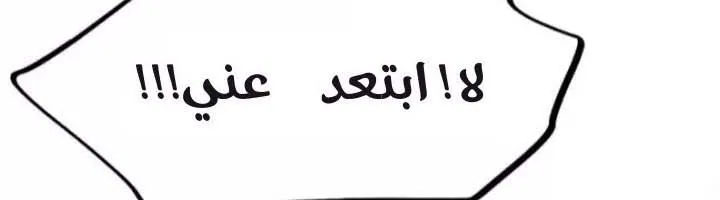 لا! ابتعد عني!!!